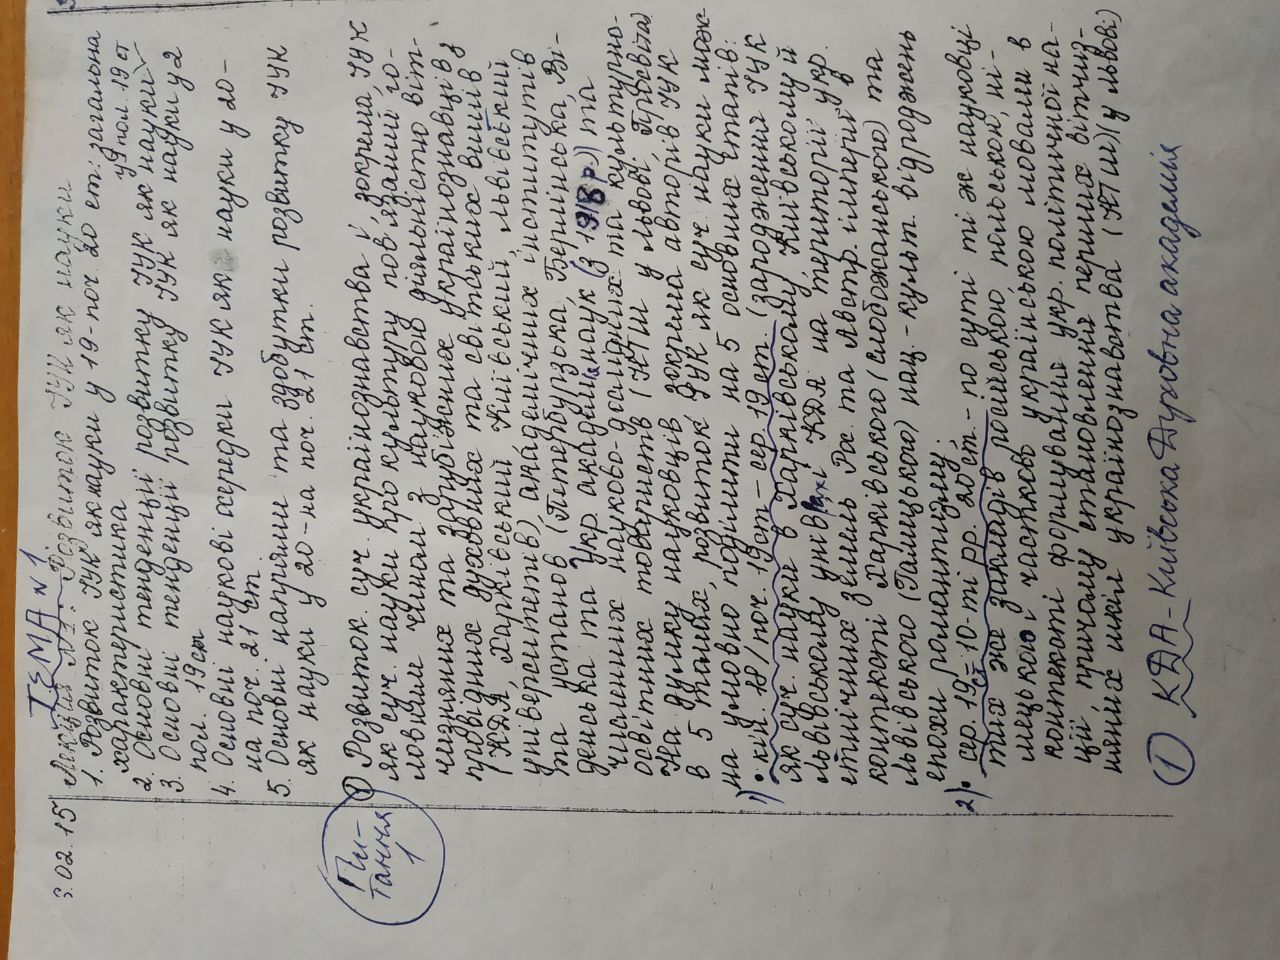 ТЕМА №1
3.02.15 Лекция №1: Розвиток ІУК як науки
1. Розвиток ІУК як науки у 19-поч. 20 ст: загальна
характеристика
у 1 пол. 19 ст
2. Основні тенденції розвитку ІУК як науки
3. Основні тенденції розвитку ІУК як науки у 2
пол. 19ст
4. Основні наукові осередки ІУК як науки у 20-
на поч. 21 ст.
5. Основні напрями та здобутки розвитку ІУК
як науки у 20-на поч. 21 ст.
Пи-
тання
1
① Розвиток суч. українознавства і, зокрема, ІУК
як суч. науки про культуру пов'язаний го-
ловним чином з науковою діяльністю віт-
чизняних та зарубіжних українознавців з
провідних духовних та світських вишів
(КДА, Харківський, Київський, Львівський
університетів), академічних інститутів
та установ (Петербурзька, Берлінська, Ві-
денська та Укр. академія наук (з 1918 р.)) та
численних науково-дослідних та культурно-
освітних товариств (НТШ у Львові, Просвіта).
На думку науковців, зокрема авторів ІУК
в 5 томах, розвиток ІУК як суч. науки мож-
на умовно поділити на 5 основних етапів:
1) • кін. 18/поч. 19ст – сер. 19 ст. (зародження ІУК
як суч. науки в Харківському, Київському й
Львівському унів-ах і КДА на території укр.
етнічних земель Рос. та Австр. імперій в
контексті Харківського (Слобожанського) та
Львівського (Галицького) нац.-культ. відроджень
епохи романтизму;
2) • сер. 19 ст – 10-ті рр. 20 ст. – по суті ті ж науковці
тих же закладів російською, польською, ні-
мецькою і частково українською мовами в
контексті формування укр. політичної на-
ції, причому становлення перших вітчиз-
няних шкіл українознавства (НТШ) (у Львові)
① КДА – Київська Духовна академія